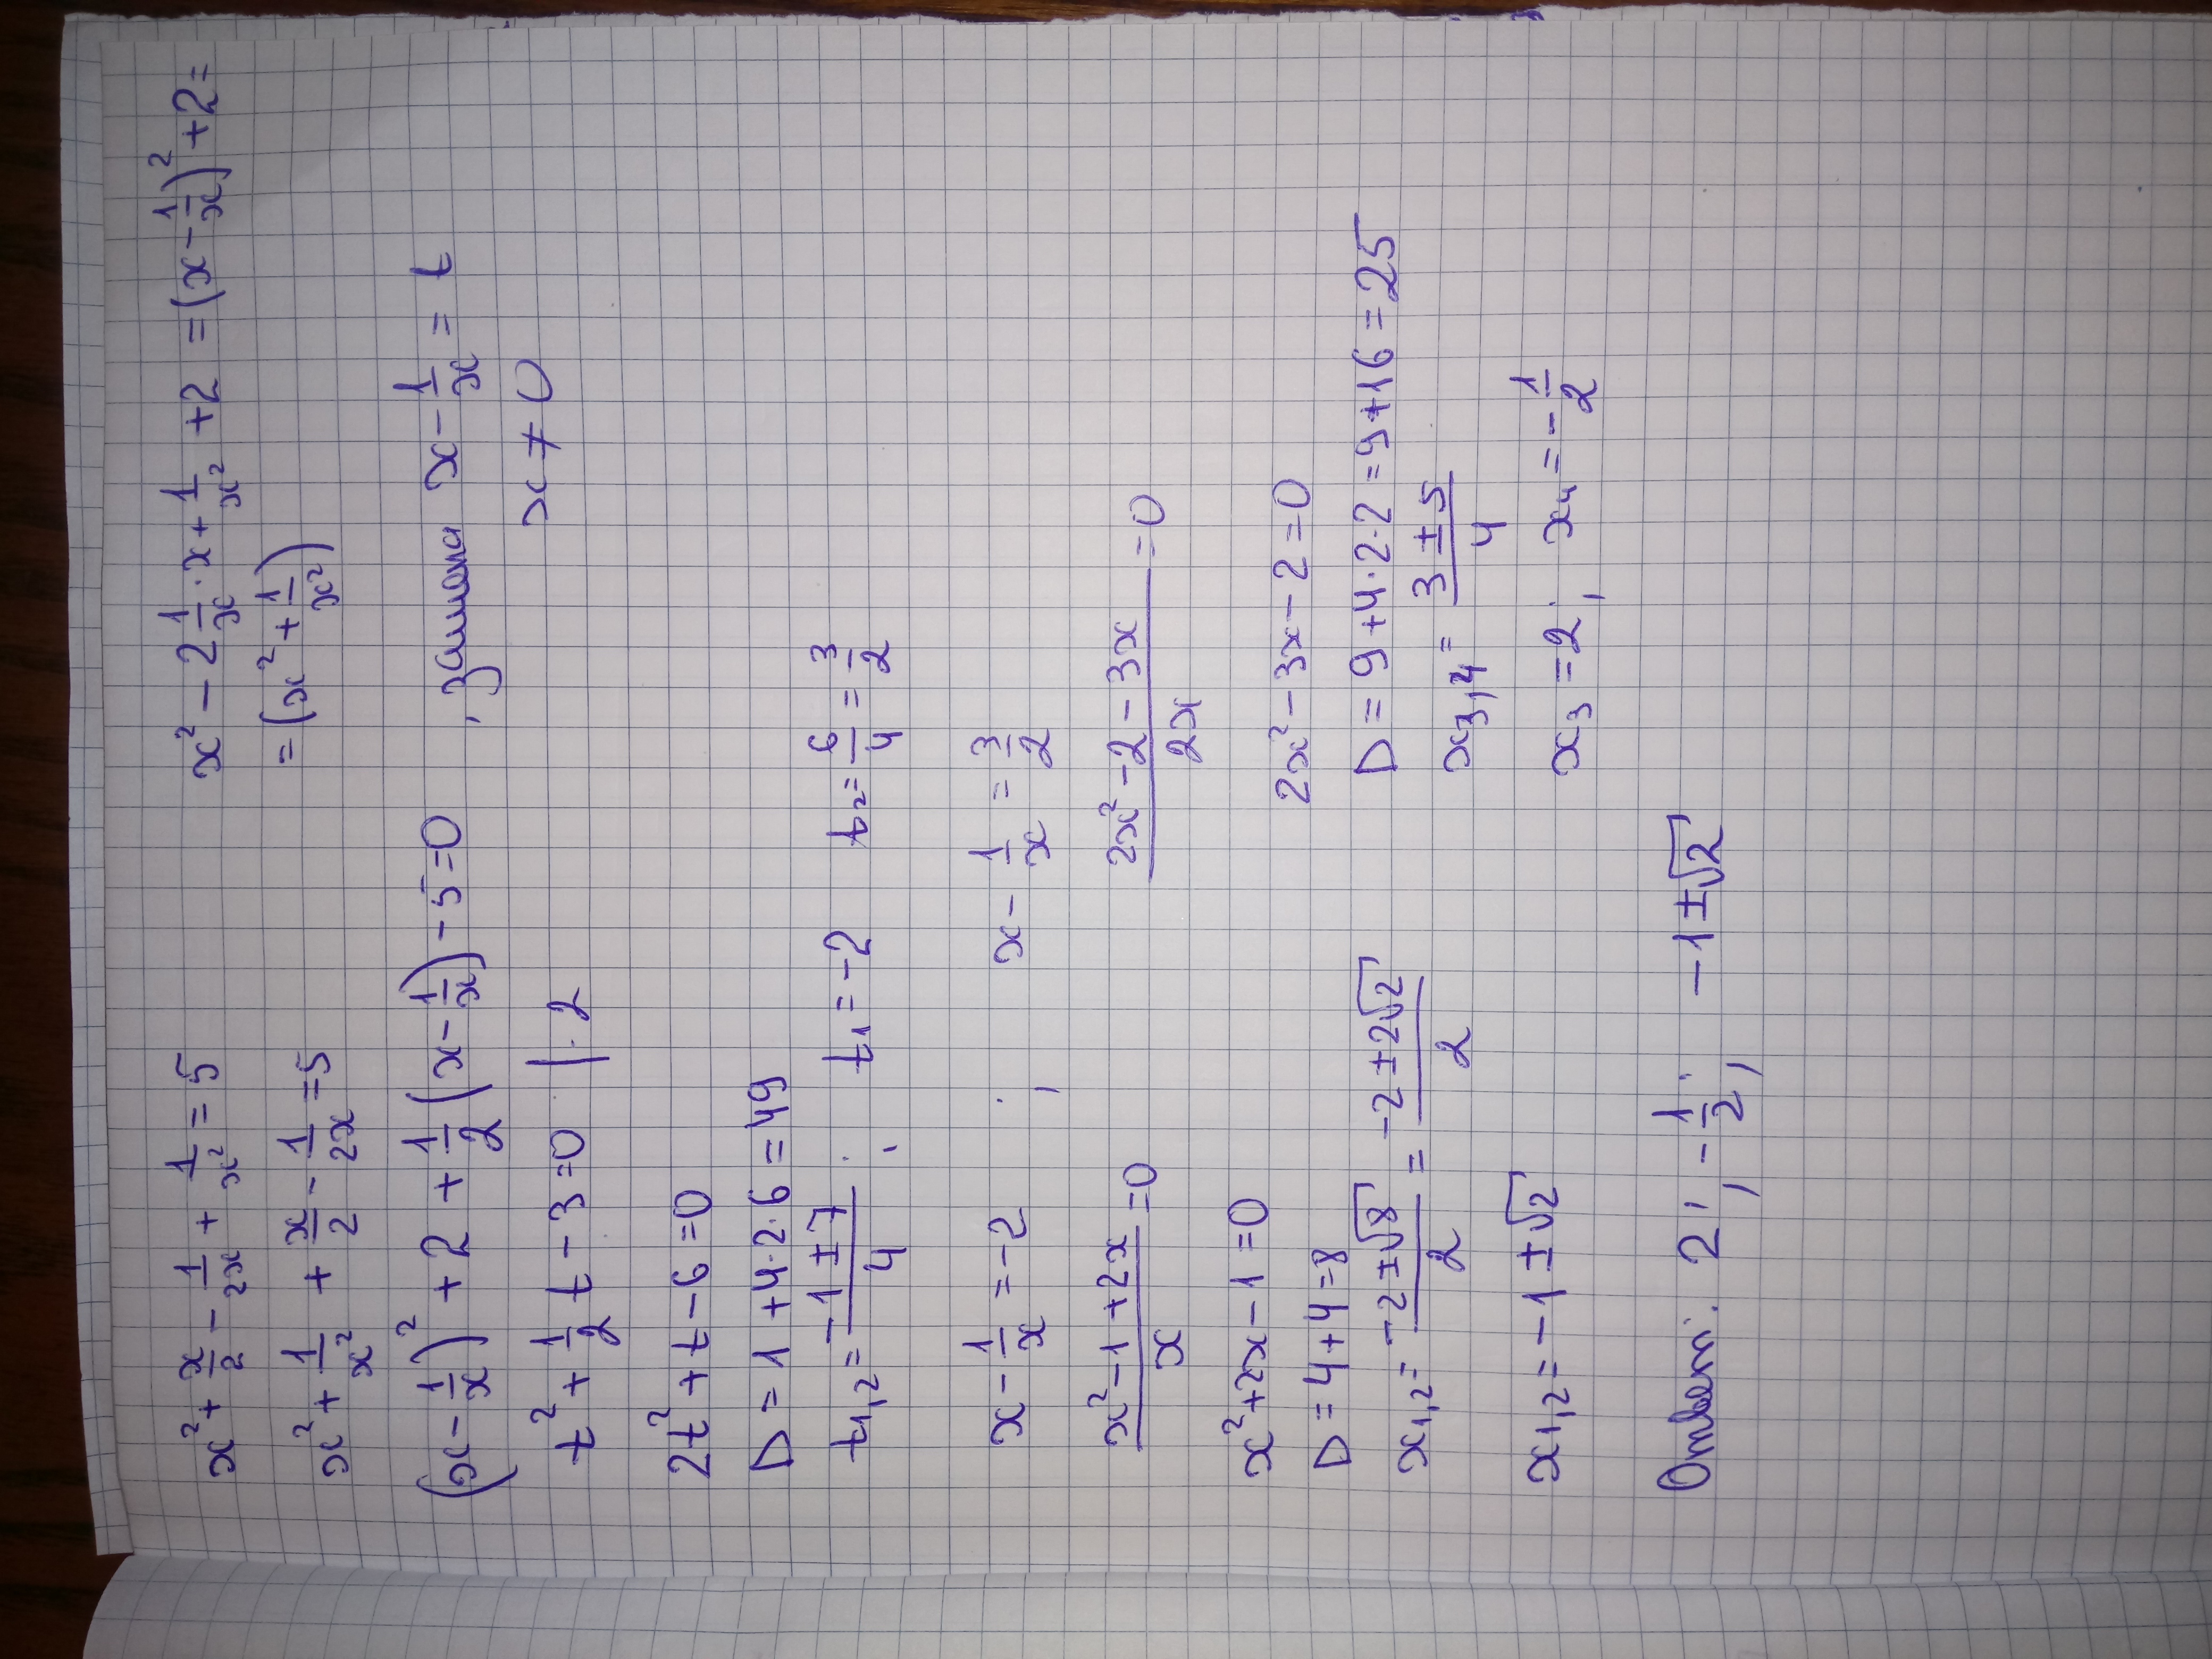 x² + x/2 - 1/2x + 1/x² = 5
x² - 2 1/x · x + 1/x² + 2 = (x - 1/x)² + 2 =
= (x² + 1/x²)
x² + 1/x² + x/2 - 1/2x = 5
(x - 1/x)² + 2 + 1/2 (x - 1/x) - 5 = 0 , замена x - 1/x = t
t² + 1/2 t - 3 = 0 | · 2
x ≠ 0
2t² + t - 6 = 0
D = 1 + 4·2·6 = 49
t1,2 = -1 ± 7/4 ; t1 = -2 t2 = 6/4 = 3/2
x - 1/x = -2 ; x - 1/x = 3/2
x² - 1 + 2x/x = 0 2x² - 2 - 3x/2x = 0
x² + 2x - 1 = 0 2x² - 3x - 2 = 0
D = 4 + 4 = 8 D = 9 + 4·2·2 = 9 + 16 = 25
x1,2 = -2 ± √8/2 = -2 ± 2√2/2 x3,4 = 3 ± 5/4
x1,2 = -1 ± √2 x3 = 2; x4 = -1/2
Ответ. 2; -1/2; -1 ± √2